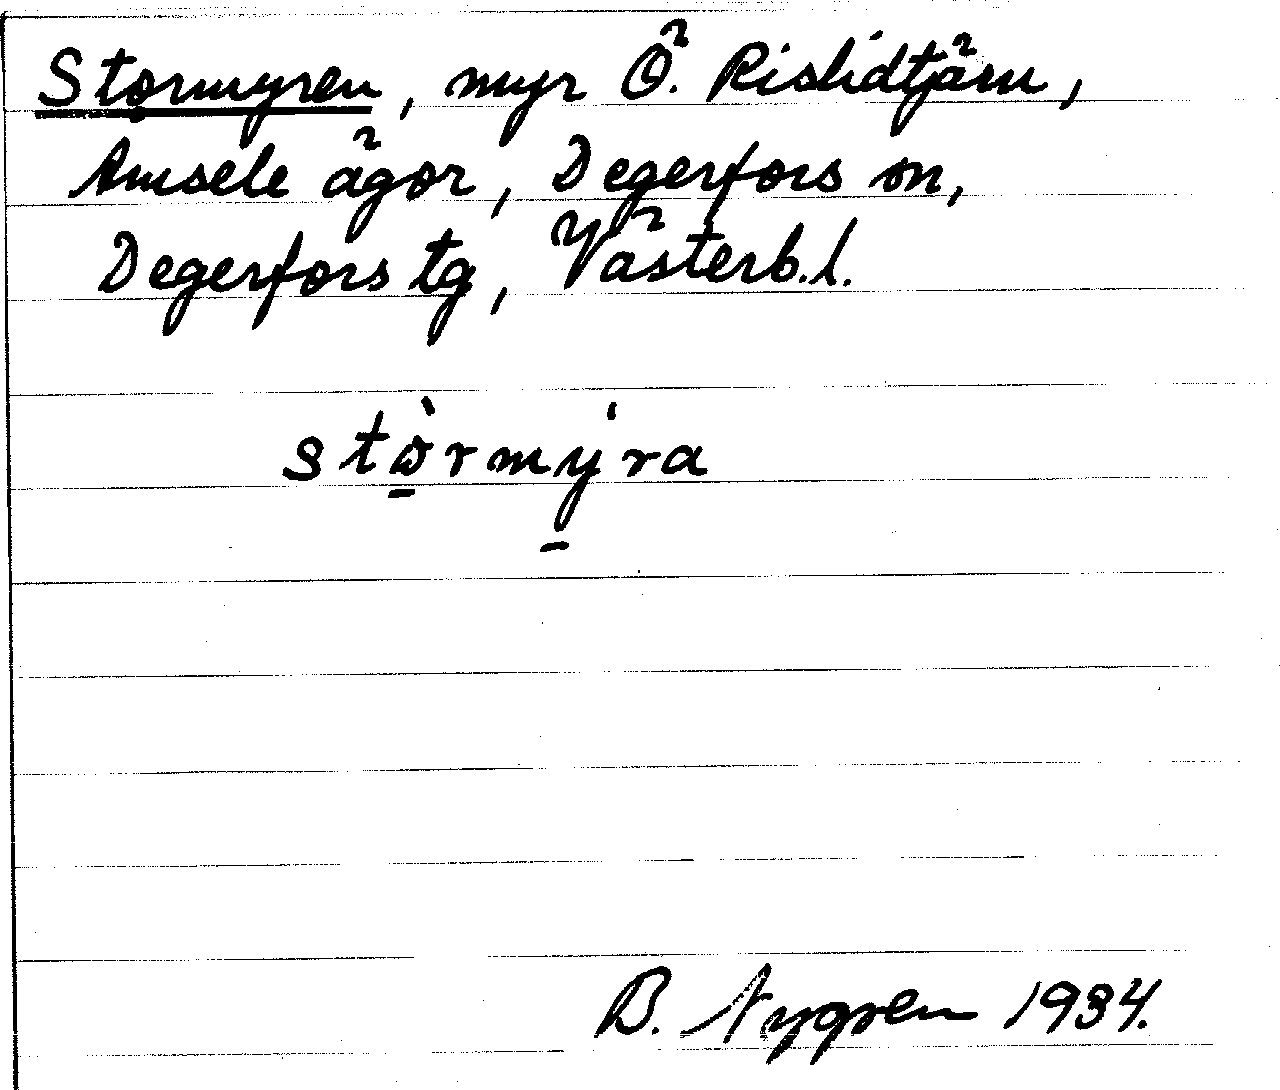 Stormyren, myr Ö. Rislidtjärn,
Åmsele ägor, Degerfors sn,
Degerfors tg, Västerb.l.
stò̱rmý̱ra
B. Nygren 1934.